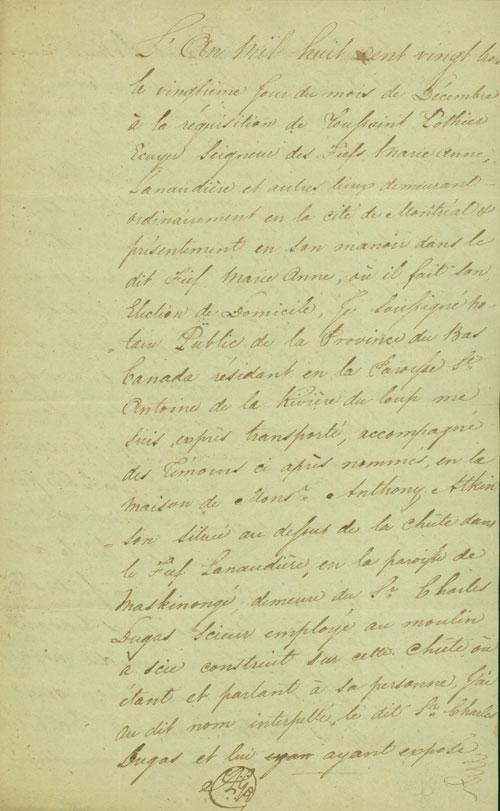 L'An mil huit cent vingt trois
le vingtième jour du mois de Décembre
à la réquisition de Toussaint Pothier
Ecuyer Seigneur des Fiefs Marie Anne,
Lanaudière et autres lieux demeurant
ordinairement en la cité de Montréal &
présentement en son manoir dans le
dit Fief Marie Anne, où il fait son
Election de Domicile, Je soussigné no-
=taire Public de la Province du Bas
Canada résidant en la Paroisse St.
Antoine de la Rivière du loup me
suis exprès transporté, accompagné
des Témoins ci après nommés, en la
maison de Monsr. Anthony Atkin
=son située au dessus de la chûte dans
le Fief Lanaudière, en la paroisse de
Maskinongé, demeure du Sr. Charles
Dugas Scieur employé au moulin
à scie construit sur cette chûte, où
étant et parlant à sa personne, J'ai
au dit nom interpellé, le dit Sr. Charles
Dugas et lui ayant exposé